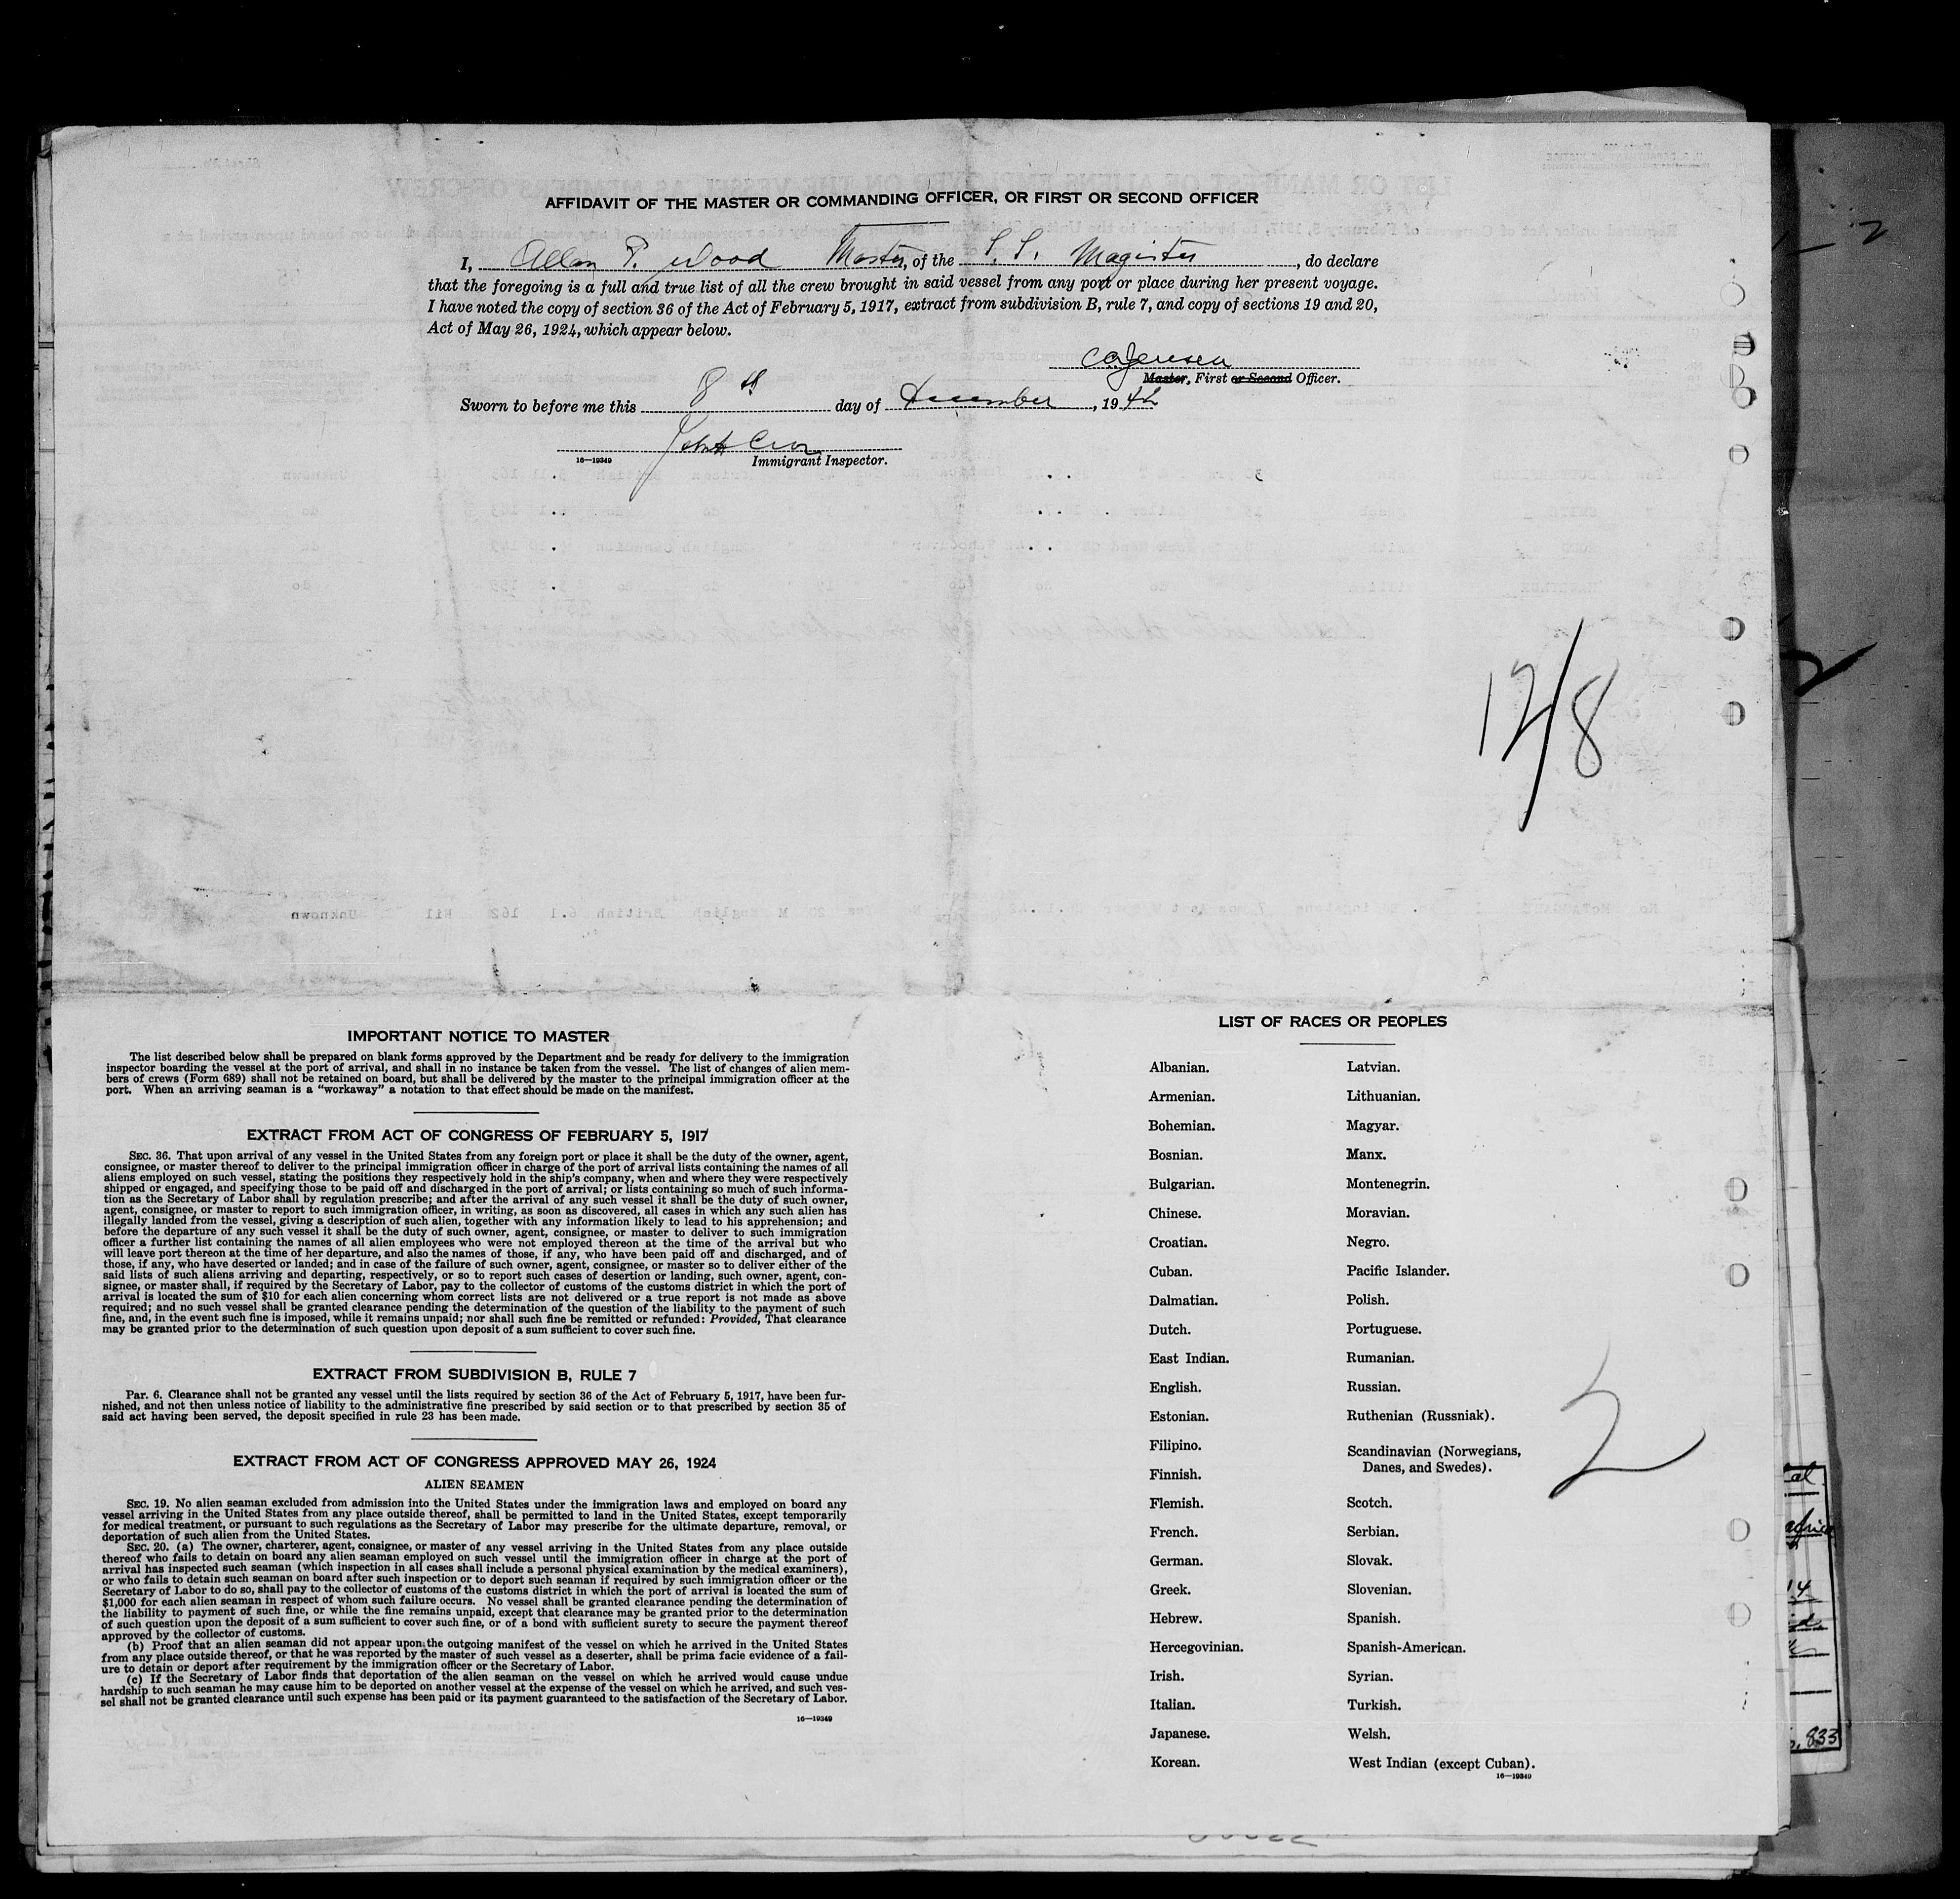 AFFIDAVIT OF THE MASTER OR COMMANDING OFFICER, OR FIRST OR SECOND OFFICER
I, Allan P. Wood Master, of the S.S. Magister, do declare
that the foregoing is a full and true list of all the crew brought in said vessel from any port or place during her present voyage.
I have noted the copy of section 36 of the Act of February 5, 1917, extract from subdivision B, rule 7, and copy of sections 19 and 20,
Act of May 26, 1924, which appear below.
Master, First or Second Officer.
Sworn to before me this 8th day of December, 1942
16—19349 Immigrant Inspector.
12/8
IMPORTANT NOTICE TO MASTER
The list described below shall be prepared on blank forms approved by the Department and be ready for delivery to the immigration
inspector boarding the vessel at the port of arrival, and shall in no instance be taken from the vessel. The list of changes of alien mem-
bers of crews (Form 689) shall not be retained on board, but shall be delivered by the master to the principal immigration officer at the
port. When an arriving seaman is a "workaway" a notation to that effect should be made on the manifest.
EXTRACT FROM ACT OF CONGRESS OF FEBRUARY 5, 1917
SEC. 36. That upon arrival of any vessel in the United States from any foreign port or place it shall be the duty of the owner, agent,
consignee, or master thereof to deliver to the principal immigration officer in charge of the port of arrival lists containing the names of all
aliens employed on such vessel, stating the positions they respectively hold in the ship's company, when and where they were respectively
shipped or engaged, and specifying those to be paid off and discharged in the port of arrival; or lists containing so much of such informa-
tion as the Secretary of Labor shall by regulation prescribe; and after the arrival of any such vessel it shall be the duty of such owner,
agent, consignee, or master to report to such immigration officer, in writing, as soon as discovered, all cases in which any such alien has
illegally landed from the vessel, giving a description of such alien, together with any information likely to lead to his apprehension; and
before the departure of any such vessel it shall be the duty of such owner, agent, consignee, or master to deliver to such immigration
officer a further list containing the names of all alien employees who were not employed thereon at the time of the arrival but who
will leave port thereon at the time of her departure, and also the names of those, if any, who have been paid off and discharged, and of
those, if any, who have deserted or landed; and in case of the failure of such owner, agent, consignee, or master so to deliver either of the
said lists of such aliens arriving and departing, respectively, or so to report such cases of desertion or landing, such owner, agent, con-
signee, or master shall, if required by the Secretary of Labor, pay to the collector of customs of the customs district in which the port of
arrival is located the sum of $10 for each alien concerning whom correct lists are not delivered or a true report is not made as above
required; and no such vessel shall be granted clearance pending the determination of the question of the liability to the payment of such
fine, and, in the event such fine is imposed, while it remains unpaid; nor shall such fine be remitted or refunded: Provided, That clearance
may be granted prior to the determination of such question upon deposit of a sum sufficient to cover such fine.
EXTRACT FROM SUBDIVISION B, RULE 7
Par. 6. Clearance shall not be granted any vessel until the lists required by section 36 of the Act of February 5, 1917, have been fur-
nished, and not then unless notice of liability to the administrative fine prescribed by said section or to that prescribed by section 35 of
said act having been served, the deposit specified in rule 23 has been made.
EXTRACT FROM ACT OF CONGRESS APPROVED MAY 26, 1924
ALIEN SEAMEN
SEC. 19. No alien seaman excluded from admission into the United States under the immigration laws and employed on board any
vessel arriving in the United States from any place outside thereof, shall be permitted to land in the United States, except temporarily
for medical treatment, or pursuant to such regulations as the Secretary of Labor may prescribe for the ultimate departure, removal, or
deportation of such alien from the United States.
SEC. 20. (a) The owner, charterer, agent, consignee, or master of any vessel arriving in the United States from any place outside
thereof who fails to detain on board any alien seaman employed on such vessel until the immigration officer in charge at the port of
arrival has inspected such seaman (which inspection in all cases shall include a personal physical examination by the medical examiners),
or who fails to detain such seaman on board after such inspection or to deport such seaman if required by such immigration officer or the
Secretary of Labor to do so, shall pay to the collector of customs of the customs district in which the port of arrival is located the sum of
$1,000 for each alien seaman in respect of whom such failure occurs. No vessel shall be granted clearance pending the determination of
the liability to payment of such fine, or while the fine remains unpaid, except that clearance may be granted prior to the determination
of such question upon the deposit of a sum sufficient to cover such fine, or of a bond with sufficient surety to secure the payment thereof
approved by the collector of customs.
(b) Proof that an alien seaman did not appear upon the outgoing manifest of the vessel on which he arrived in the United States
from any place outside thereof, or that he was reported by the master of such vessel as a deserter, shall be prima facie evidence of a fail-
ure to detain or deport after requirement by the immigration officer or the Secretary of Labor.
(c) If the Secretary of Labor finds that deportation of the alien seaman on the vessel on which he arrived would cause undue
hardship to such seaman he may cause him to be deported on another vessel at the expense of the vessel on which he arrived, and such ves-
sel shall not be granted clearance until such expense has been paid or its payment guaranteed to the satisfaction of the Secretary of Labor.
16—19349
LIST OF RACES OR PEOPLES
Albanian.
Armenian.
Bohemian.
Bosnian.
Bulgarian.
Chinese.
Croatian.
Cuban.
Dalmatian.
Dutch.
East Indian.
English.
Estonian.
Filipino.
Finnish.
Flemish.
French.
German.
Greek.
Hebrew.
Hercegovinian.
Irish.
Italian.
Japanese.
Korean.
Latvian.
Lithuanian.
Magyar.
Manx.
Montenegrin.
Moravian.
Negro.
Pacific Islander.
Polish.
Portuguese.
Rumanian.
Russian.
Ruthenian (Russniak).
Scandinavian (Norwegians,
Danes, and Swedes).
Scotch.
Serbian.
Slovak.
Slovenian.
Spanish.
Spanish-American.
Syrian.
Turkish.
Welsh.
West Indian (except Cuban).
16—19349
2
833